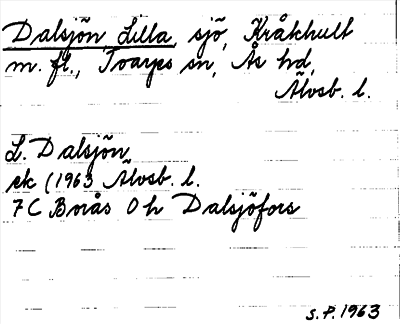 Dalsjön, Lilla, sjö, Kråkhult
m. fl., Toarps sn, Ås hd,
Älvsb. l.
L. Dalsjön
ek (1963 Älvsb. l.
7 C Borås 0 h Dalsjöfors
S.P. 1963